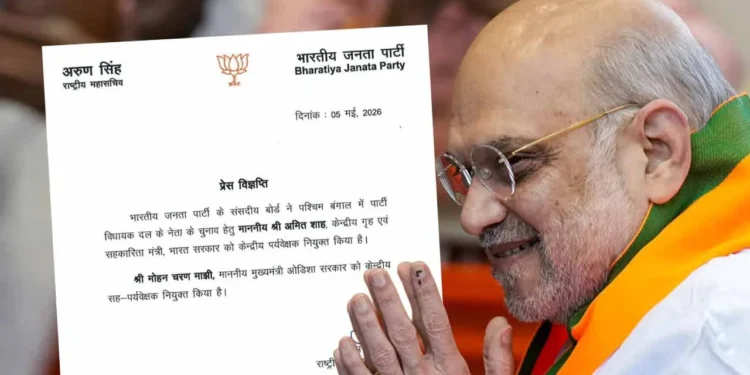 अरुण सिंह
राष्ट्रीय महासचिव
भारतीय जनता पार्टी
Bharatiya Janata Party
दिनांक : 05 मई, 2026
प्रेस विज्ञप्ति
भारतीय जनता पार्टी के संसदीय बोर्ड ने पश्चिम बंगाल में पार्टी
विधायक दल के नेता के चुनाव हेतु माननीय श्री अमित शाह, केन्द्रीय गृह एवं
सहकारिता मंत्री, भारत सरकार को केन्द्रीय पर्यवेक्षक नियुक्त किया है।
श्री मोहन चरण माझी, माननीय मुख्यमंत्री ओडिशा सरकार को केन्द्रीय
सह–पर्यवेक्षक नियुक्त किया है।